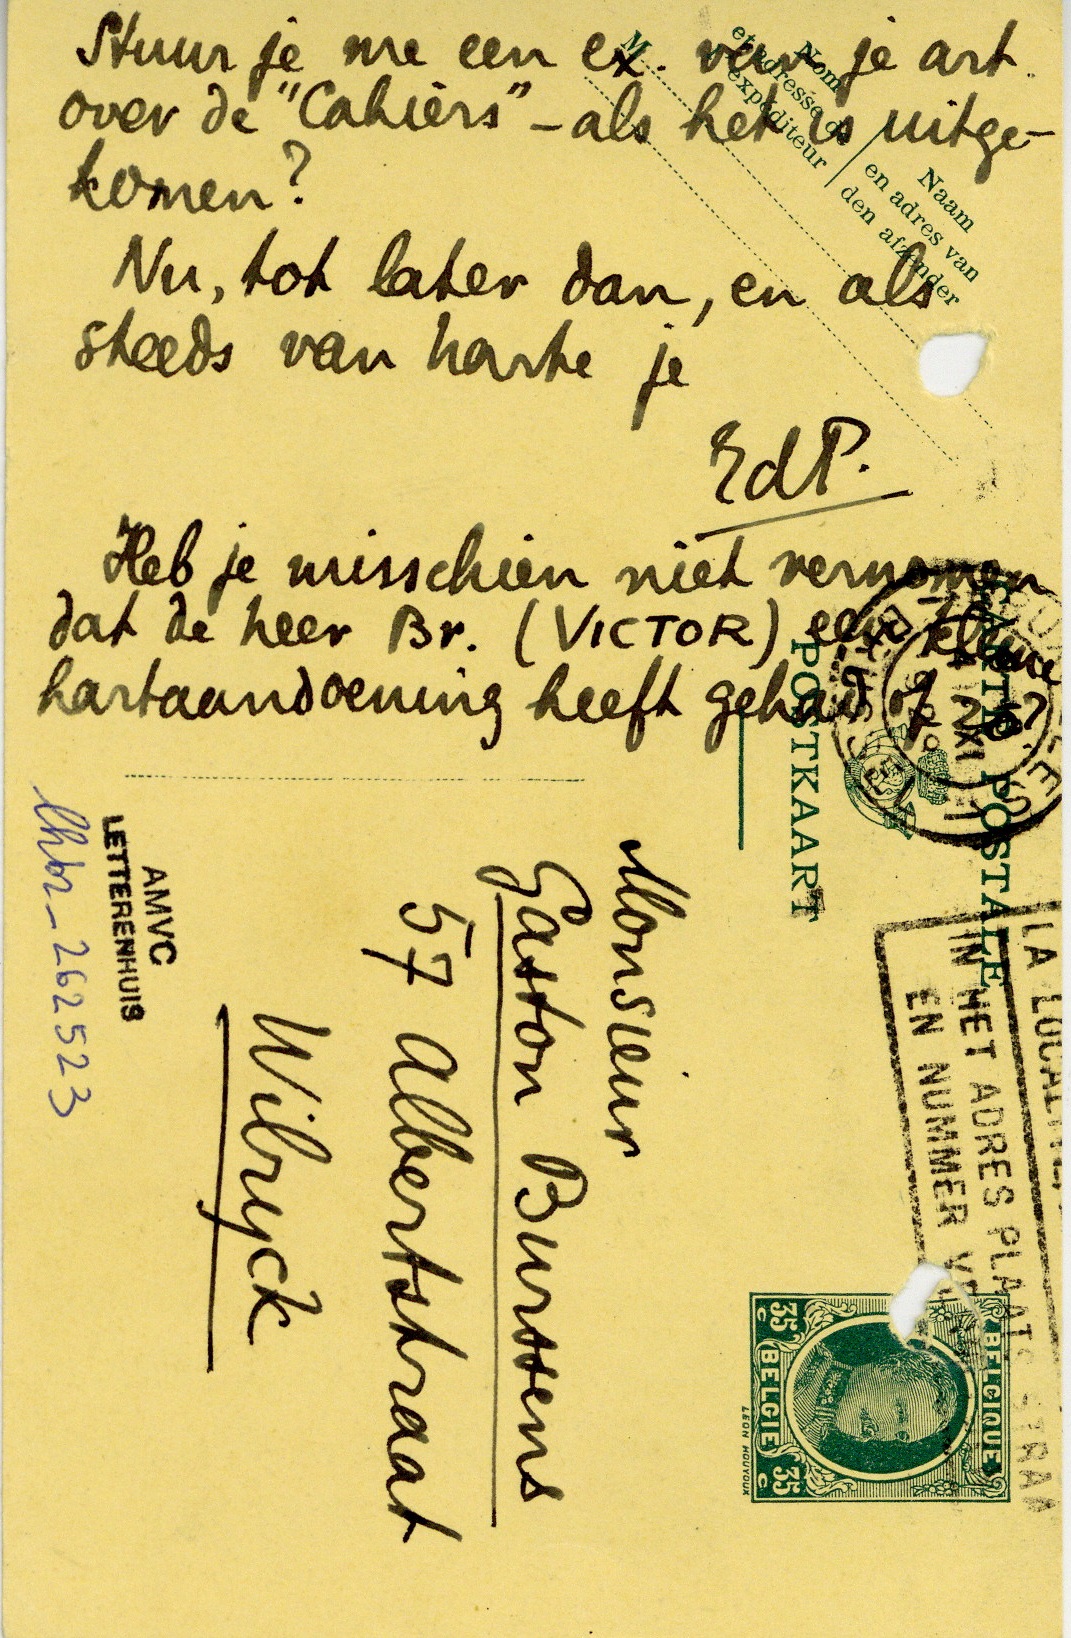 Stuur je me een ex. van je art.
over de "Cahiers" – als het is uitge-
komen?
Nu, tot later dan, en als
steeds van harte je
EdP.
Heb je misschien niet vernomen
dat de heer Br. (VICTOR) een kleine
hartaandoening heeft gehad of ?
M
Nom
et adresse de
l'expéditeur
Naam
en adres van
den afzender
CARTE POSTALE
POSTKAART
XI
LA LOCALITE
IN HET ADRES PLAATS STRAAT
EN NUMMER
BELGIQUE
BELGIË
35 C
35 C
LEON HOUYOUX
Monsieur
Gaston Burssens
57 Albertstraat
Wilryck
AMVC
LETTERENHUIS
lhbr-262523